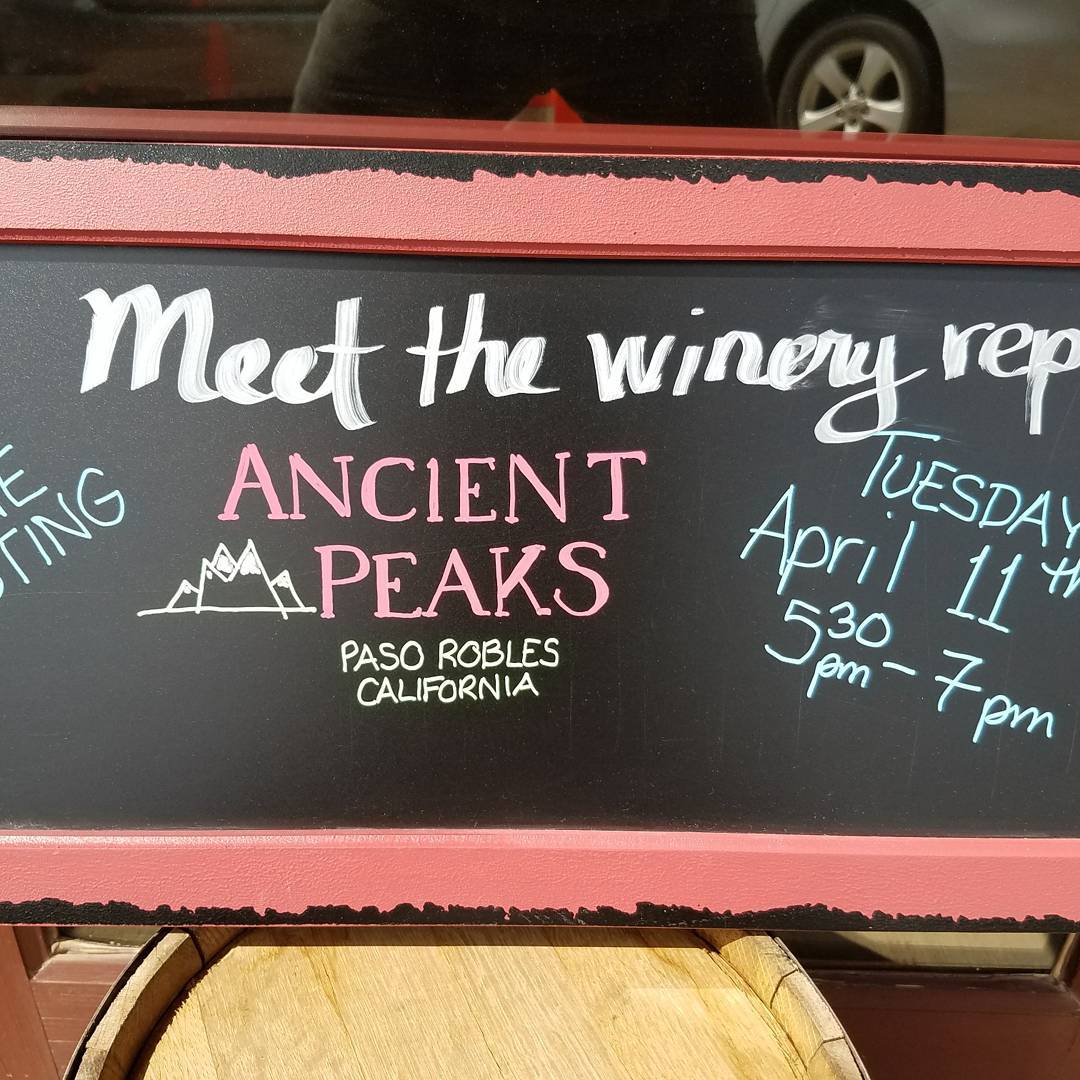 Meet the winery rep
ANCIENT
PEAKS
PASO ROBLES
CALIFORNIA
TUESDAY
April 11th
530 pm - 7 pm